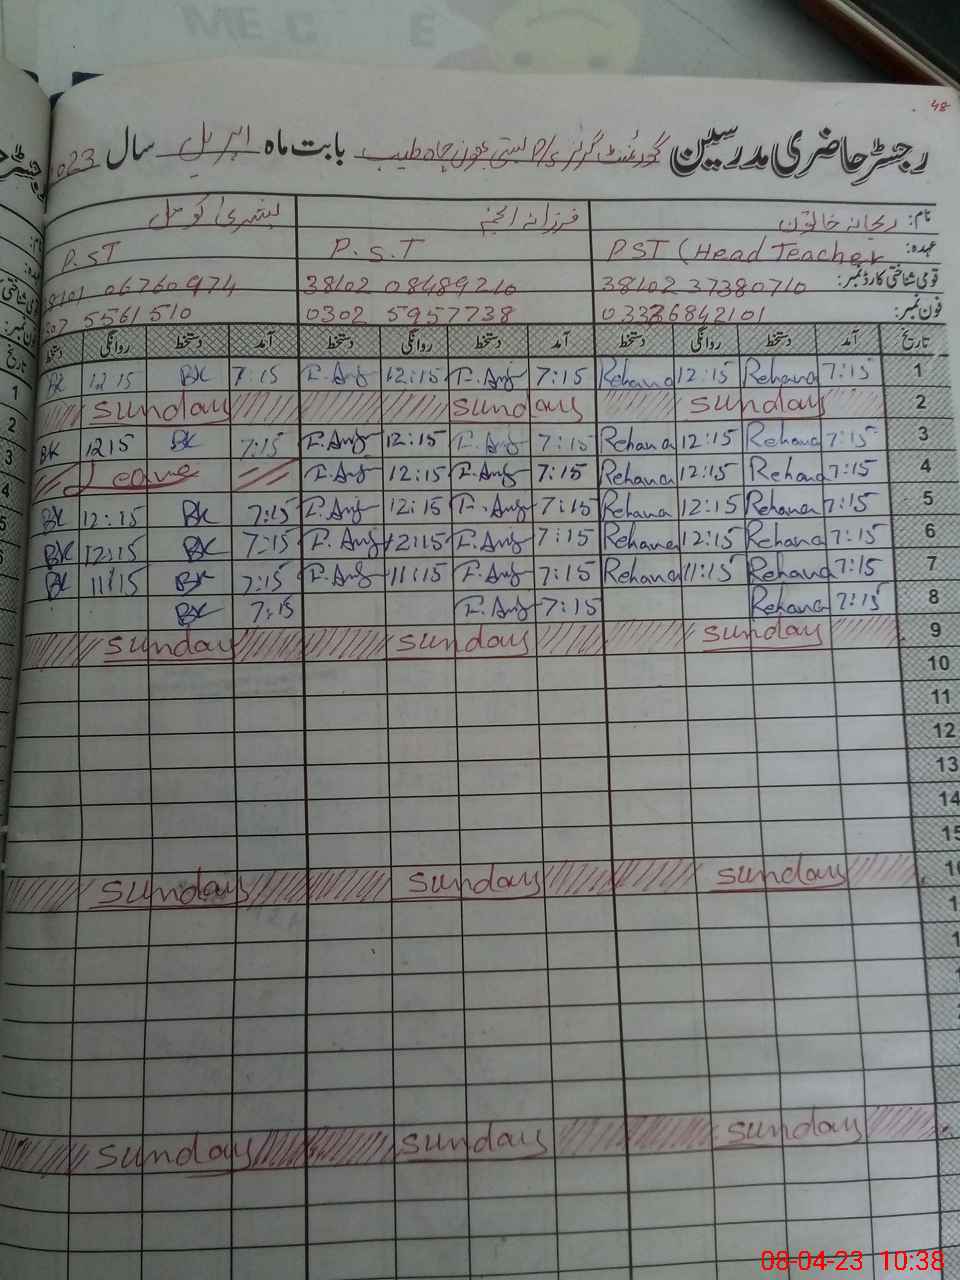 48
رجسٹر حاضری مدرسین گورنمنٹ گرلز P/S بستی چاہ طیب بابت ماہ اپریل سال 2023
نام: ریحانہ خاتون فرزانہ انجم بشریٰ کومل
عہدہ: PST (Head Teacher P.S.T P.ST
قومی شناختی کارڈ نمبر: 38102 37380710 38102 08489210 06760974
فون نمبر: 03336842101 0302 5957738 5561510
تاریخ آمد دستخط روانگی دستخط آمد دستخط روانگی دستخط آمد دستخط روانگی دستخط
1 7:15 Rehana 12:15 Rehana 7:15 F.Anj 12:15 F.Anj 7:15 BK 12 15 BK
2 Sunday Sunday Sunday
3 7:15 Rehana 12:15 Rehana 7:15 F.Anj 12:15 F.Anj 7:15 BK 12 15 BK
4 7:15 Rehana 12:15 Rehana 7:15 F.Anj 12:15 F.Anj Leave
5 7:15 Rehana 12:15 Rehana 7:15 F.Anj 12:15 F.Anj 7:15 BK 12:15 BK
6 7:15 Rehana 12:15 Rehana 7:15 F.Anj 12:15 F.Anj 7:15 BK 12:15 BK
7 7:15 Rehana 11:15 Rehana 7:15 F.Anj 11:15 F.Anj 7:15 BK 11:15 BK
8 7:15 Rehana 7:15 F.Anj 7:15 BK
9 Sunday Sunday Sunday
10
11
12
13
14
15
Sunday Sunday Sunday
Sunday Sunday Sunday
08-04-23 10:38